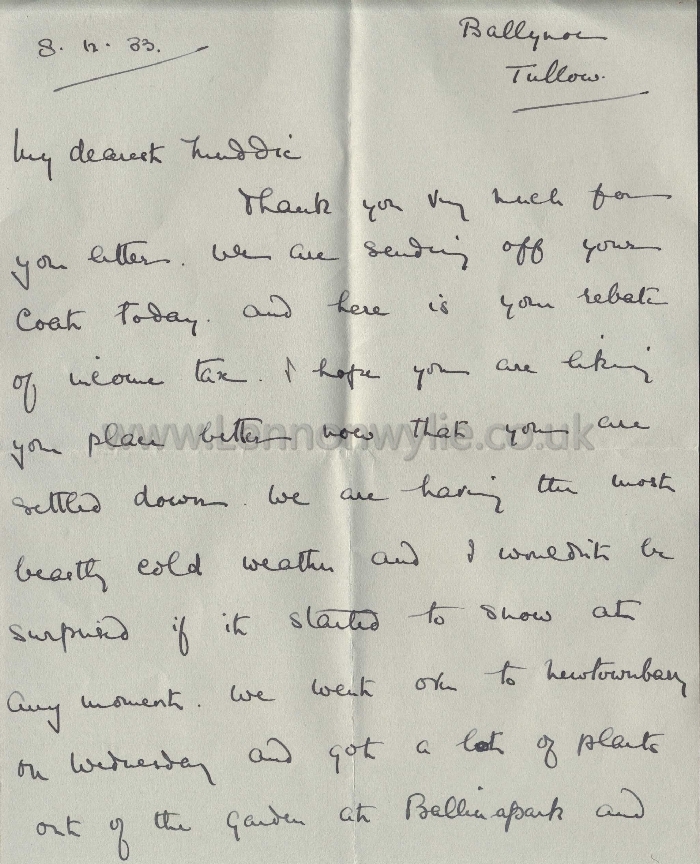 8. 12. 33.
Ballynoe
Tullow.
My dearest Muddie
Thank you very much for
your letter. We are sending off your
coat today. and here is your rebate
of income tax. I hope you are liking
your place better now that you are
www.Lennonwylie.co.uk
settled down. We are having the most
beastly cold weather and I wouldn't be
surprised if it started to snow at
any moment. We went over to Newtownbarry
on Wednesday and got a lot of plants
out of the garden at Ballinapark and